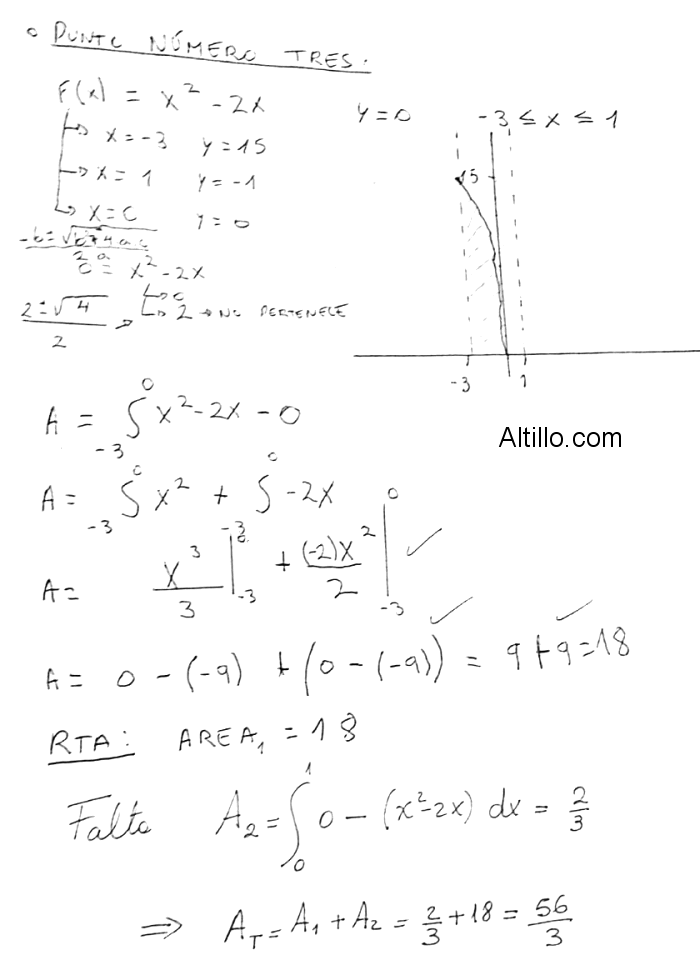 ° PUNTO NÚMERO TRES.
F(x) = x² - 2x
y = 0 -3 ≤ x ≤ 1
↳ x = -3 y = 15
↳ x = 1 y = -1
↳ x = C y = 0
15
0 = x² - 2x
↳ 0
(2 ± √4)/2 → ↳ 2 → NO PERTENECE
-3 1
A = ∫₋₃⁰ x² - 2x - 0
Altillo.com
A = ∫₋₃⁰ x² + ∫₋₃⁰ -2x
A = x³/3 |₋₃⁰ + (-2)x²/2 |₋₃⁰ ✓
A = 0 - (-9) + (0 - (-9)) = 9 + 9 = 18
RTA: AREA₁ = 18
Falta A₂ = ∫₀¹ 0 - (x² - 2x) dx = 2/3
⇒ A_T = A₁ + A₂ = 2/3 + 18 = 56/3